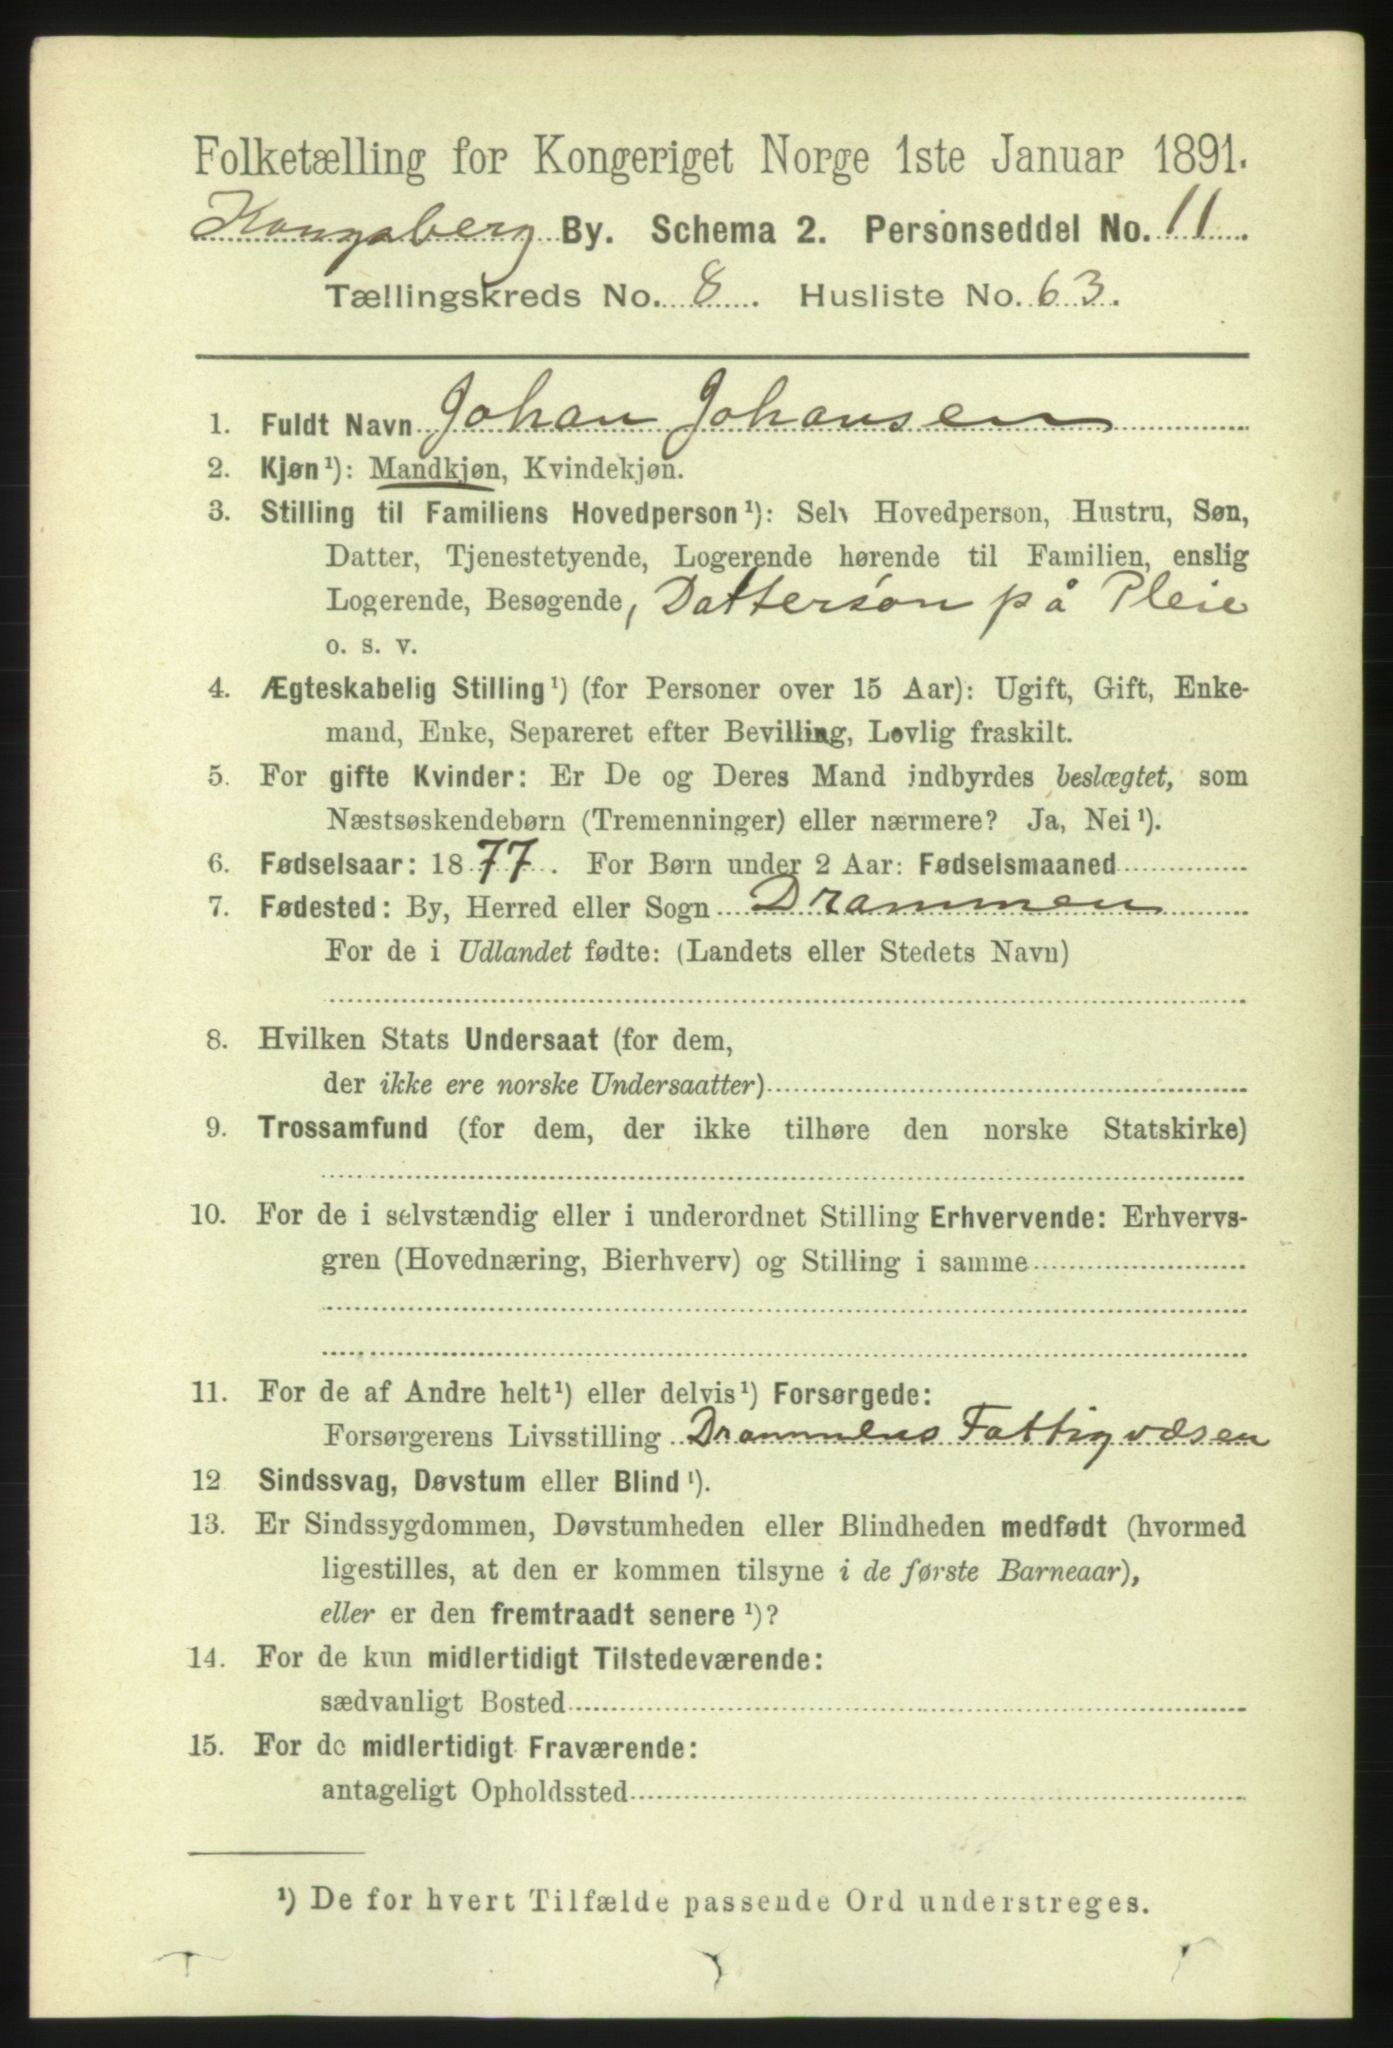 Folketælling for Kongeriget Norge 1ste Januar 1891.
Kongsberg By. Schema 2. Personseddel No. 11
Tællingskreds No. 8. Husliste No. 63.
1. Fuldt Navn Johan Johansen
2. Kjøn¹): Mandkjøn, Kvindekjøn.
3. Stilling til Familiens Hovedperson¹): Selv Hovedperson, Hustru, Søn,
Datter, Tjenestetyende, Logerende hørende til Familien, enslig
Logerende, Besøgende, Dattersøn på Pleie
o. s. v.
4. Ægteskabelig Stilling¹) (for Personer over 15 Aar): Ugift, Gift, Enke-
mand, Enke, Separeret efter Bevilling, Lovlig fraskilt.
5. For gifte Kvinder: Er De og Deres Mand indbyrdes beslægtet, som
Næstsøskendebørn (Tremenninger) eller nærmere? Ja, Nei¹).
6. Fødselsaar: 1877. For Børn under 2 Aar: Fødselsmaaned
7. Fødested: By, Herred eller Sogn Drammen
For de i Udlandet fødte: (Landets eller Stedets Navn)
8. Hvilken Stats Undersaat (for dem,
der ikke ere norske Undersaatter)
9. Trossamfund (for dem, der ikke tilhøre den norske Statskirke)
10. For de i selvstændig eller i underordnet Stilling Erhvervende: Erhvervs-
gren (Hovednæring, Bierhverv) og Stilling i samme
11. For de af Andre helt¹) eller delvis¹) Forsørgede:
Forsørgerens Livsstilling Drammens Fattigvæsen
12 Sindssvag, Døvstum eller Blind¹).
13. Er Sindssygdommen, Døvstumheden eller Blindheden medfødt (hvormed
ligestilles, at den er kommen tilsyne i de første Barneaar),
eller er den fremtraadt senere¹)?
14. For de kun midlertidigt Tilstedeværende:
sædvanligt Bosted
15. For de midlertidigt Fraværende:
antageligt Opholdssted
¹) De for hvert Tilfælde passende Ord understreges.